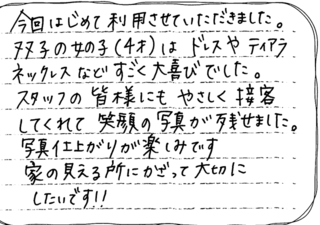 今回はじめて利用させていただきました。
双子の女の子(4才)は ドレスや ティアラ
ネックレスなど すごく大喜びでした。
スタッフの皆様にも やさしく接客
してくれて 笑顔の写真が残せました。
写真仕上がりが楽しみです
家の見える所にかざって大切に
したいです!!